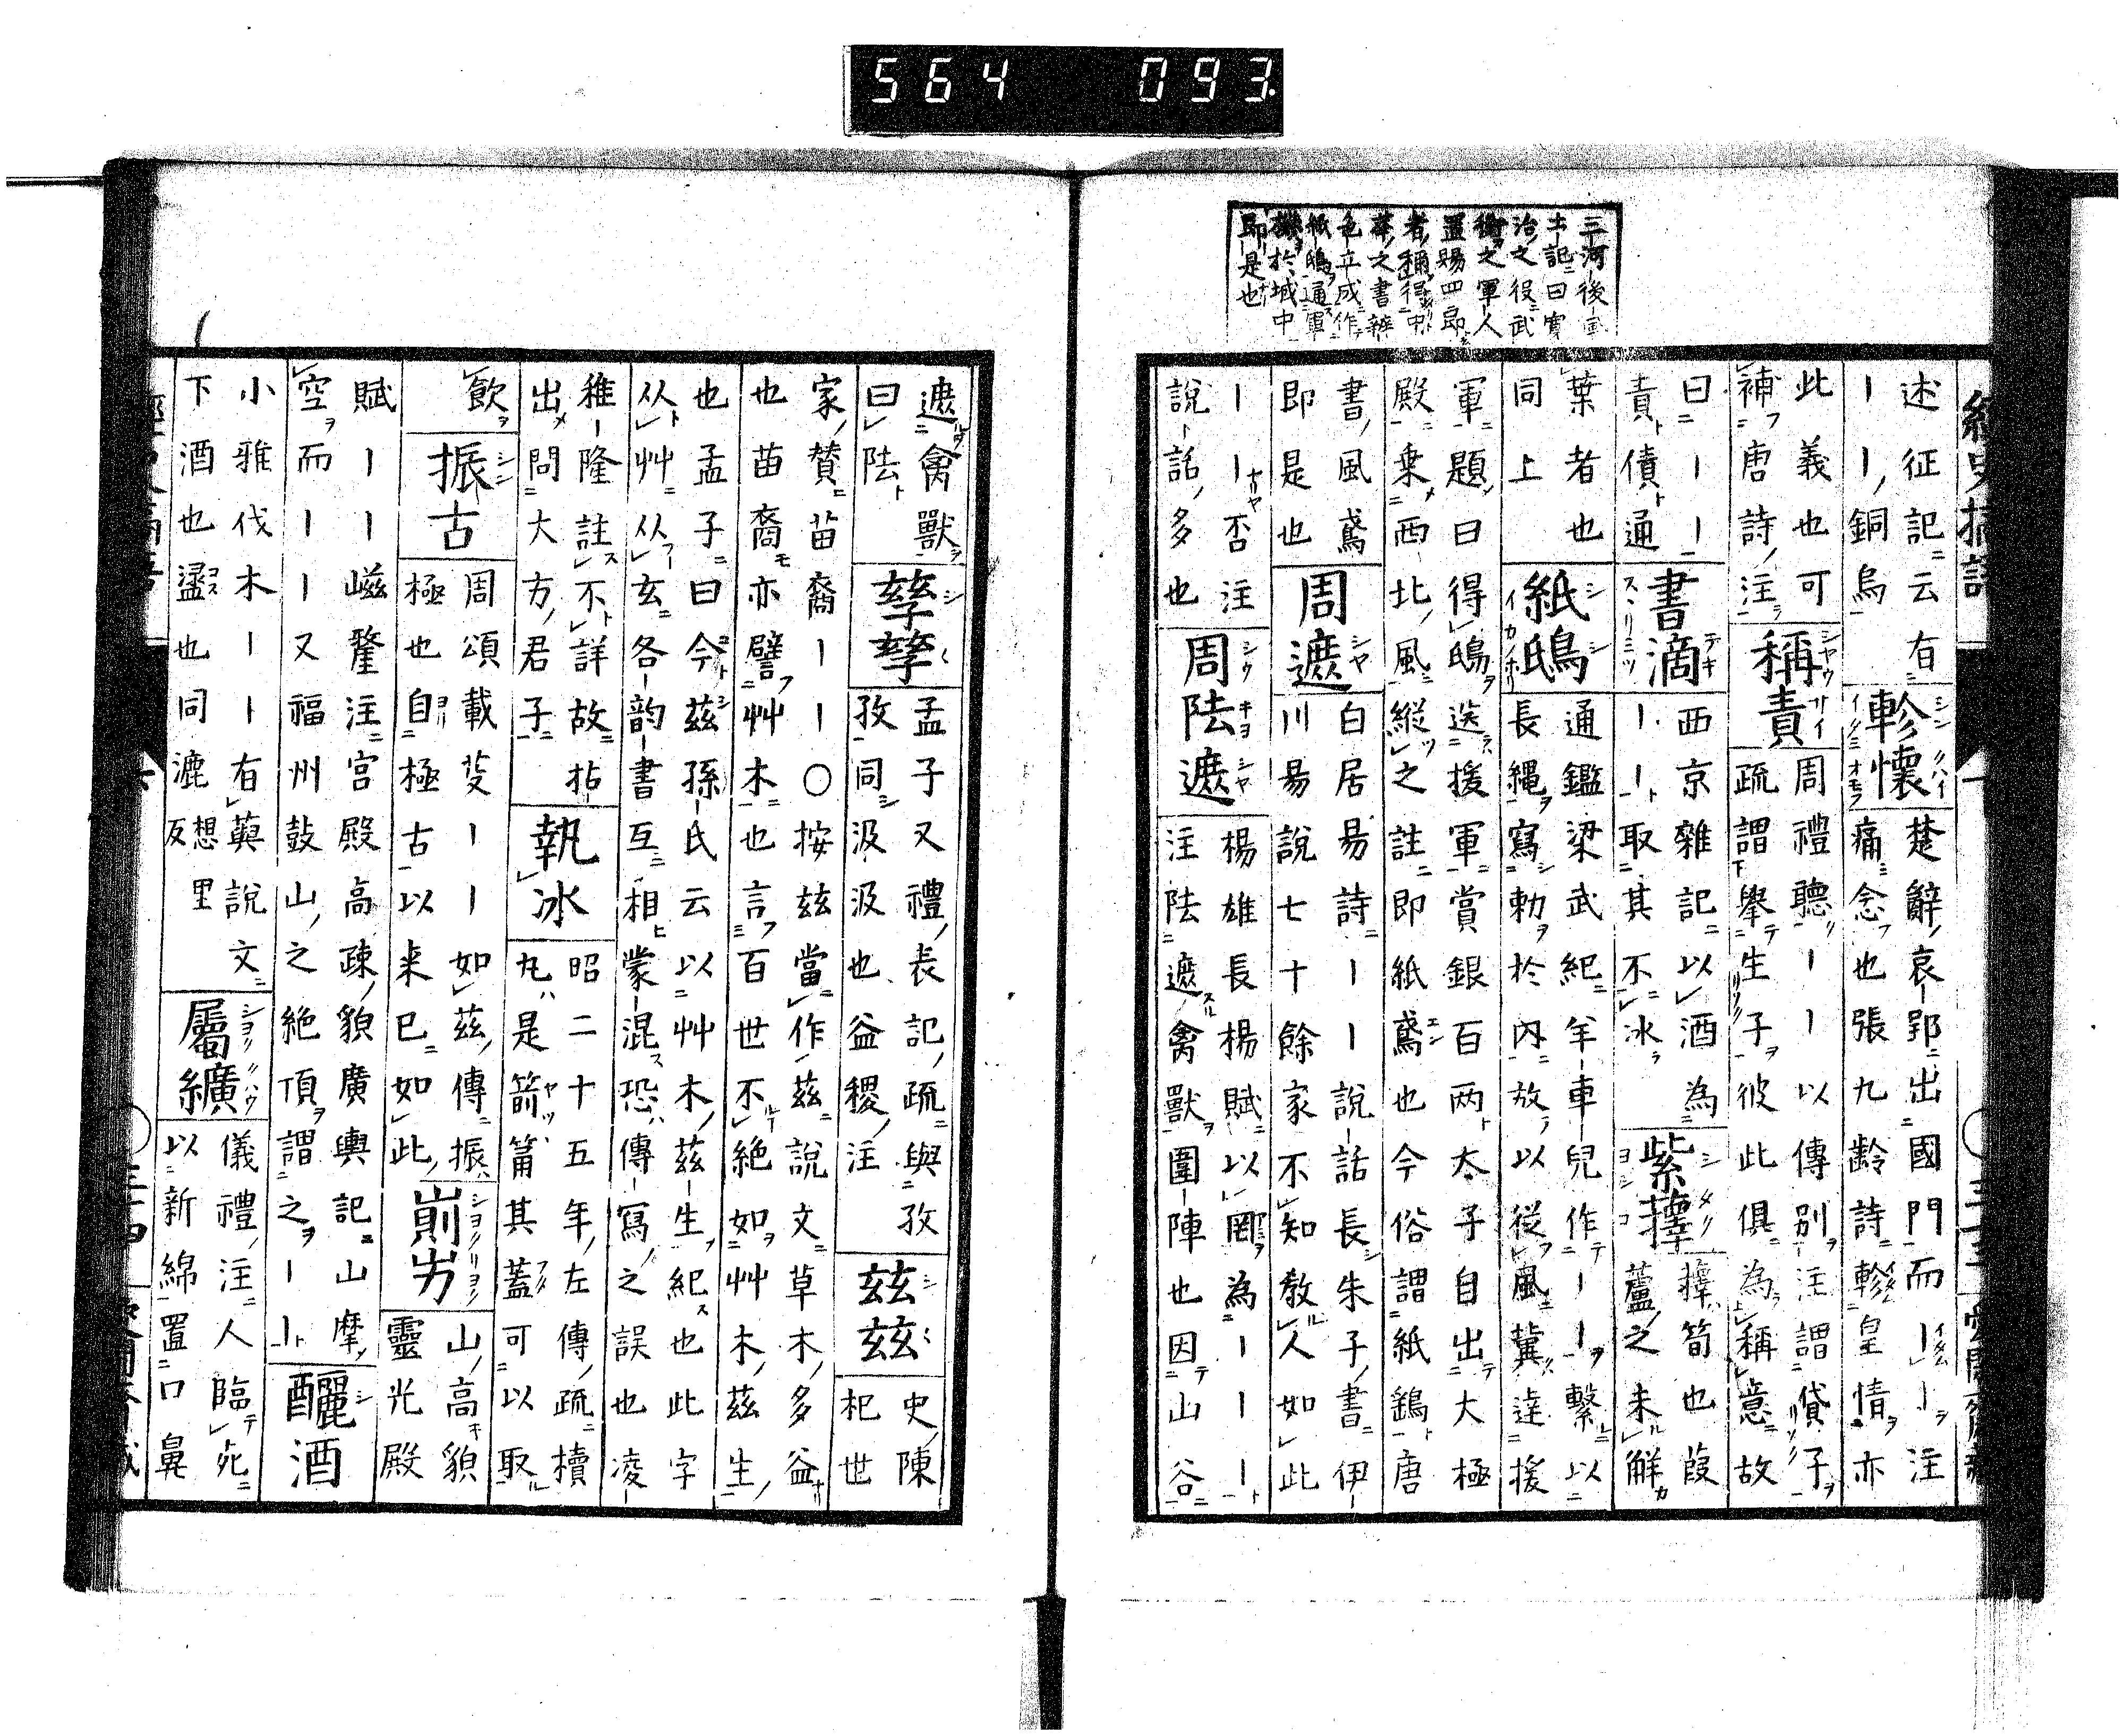 564 093
三河後風
土記曰寳
治之役武
衡之軍人
置賜四郎
者稱得中
華之書辨
色立成作
紙鴟通軍
機於城中
即是也
經史摘語
述征記云有
ーー銅烏
軫懷
楚辭哀郢出國門而ーー注
痛念也張九齡詩軫皇情亦
此義也可
補唐詩注
稱責
周禮聽ーー以傳別注謂貸子
疏謂擧生子彼此俱為稱意故
曰ーー
責債通
書滴
西京雜記以酒為
ーー取其不冰
紫蘀
蘀筍也葭
蘆之未解
葉者也
同上
紙鴟
通鑑梁武紀羊車兒作ーー繫以
長縄寫勅於内放以従風冀達援
軍題曰得鴟送援軍賞銀百两太子自出大極
殿乗西北風縦之註即紙鳶也今俗謂紙鷂唐
書風鳶
即是也
周遮
白居易詩ーー説話長朱子書伊
川易説七十餘家不知教人如此
ーー否注
説話多也
周阹遮
楊雄長楊賦以罔為ーーー
注阹遮禽獸圍陣也因山谷
遮禽獸
曰阹
孳孳
孟子又禮表記疏與孜
孜同汲汲也益稷注
兹兹
史陳
杞世
家賛苗裔ーー○按兹當作茲説文草木多益
也苗裔亦譬艸木也言百世不絶如艸木茲生
也孟子曰今茲孫氏云以艸木茲生紀也此字
从艸从玄各韵書互相蒙混恐傳寫之誤也凌
稚隆註不詳故拈
出問大方君子
執冰
昭二十五年左傳疏櫝
丸是箭筩其蓋可以取
飲
振古
周頌載芟ーー如茲傳振
極也自極古以来已如此
崱屴
山高貌
靈光殿
賦ーー嵫釐注宫殿高疎貌廣輿記山摩
空而ーー又福州鼓山之絶頂謂之ーー
釃酒
小雅伐木ーー有藇説文
下酒也盪也同漉想里反
屬纊
儀禮注人臨死
以新綿置口鼻